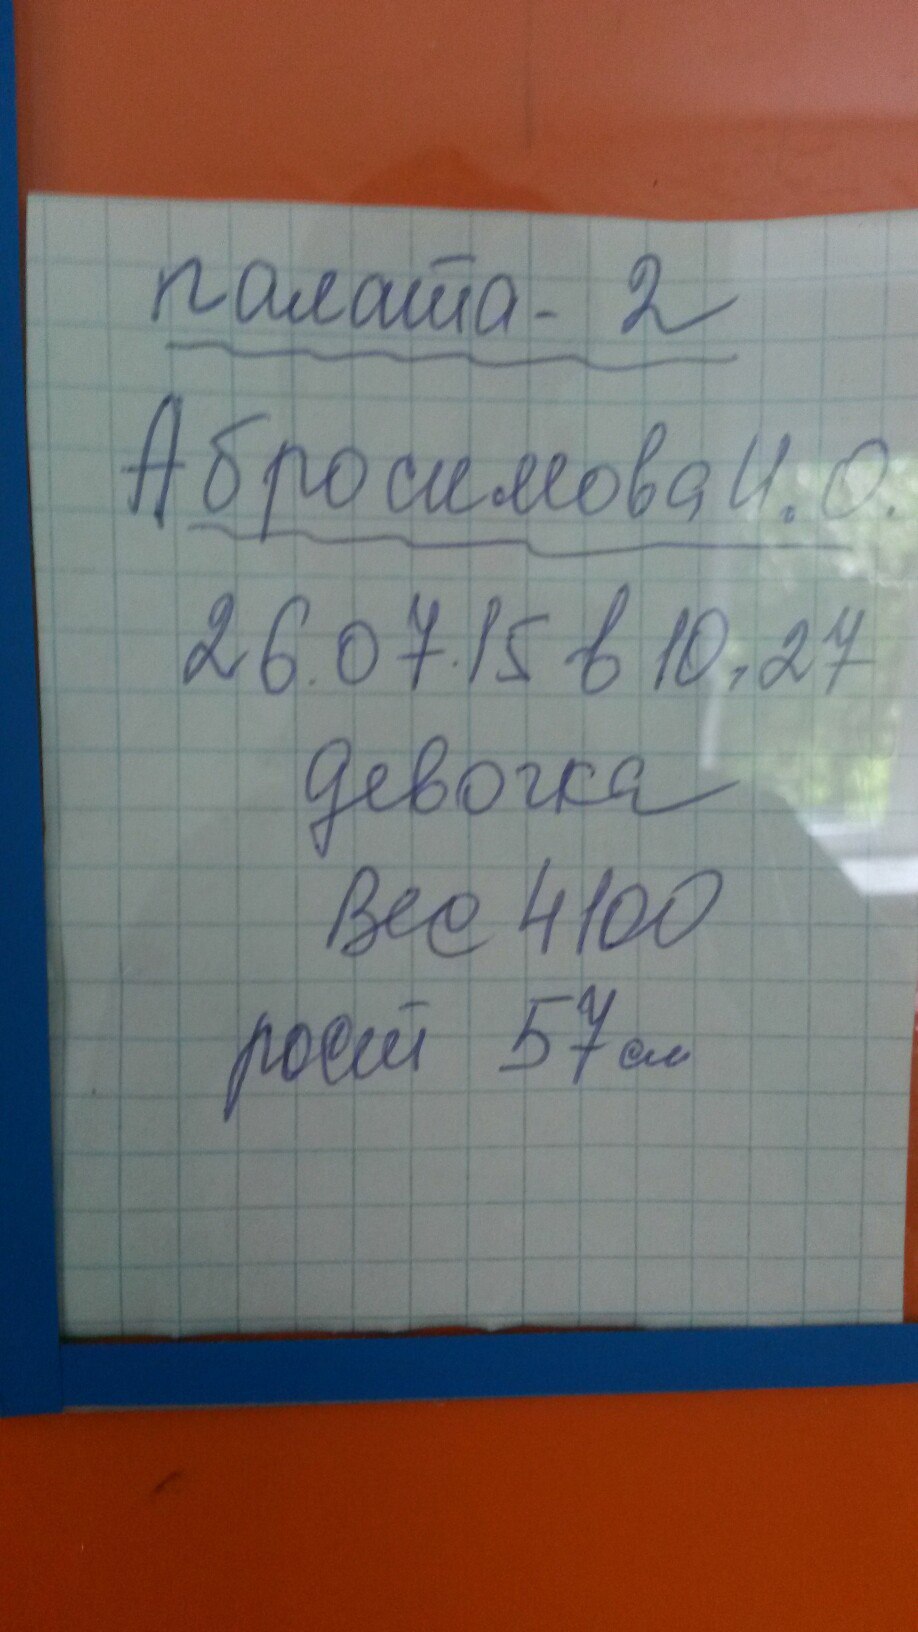 палата- 2
Абросимова И.О.
26.07.15 в 10.27
девочка
Вес 4100
рост 57 см